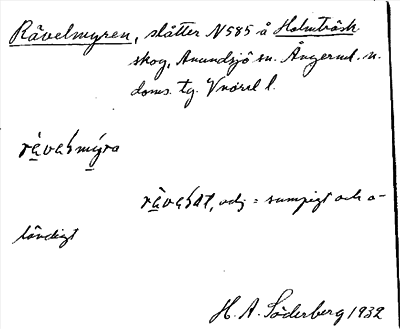 Rävelmyren, slåtter N 585 å Holmträsk
skog, Anundsjö sn. Ångerml. n.
doms. tg.
rävalmýra
rävalət, adj = sumpigt och o-
ländigt
H. A. Söderberg 1932